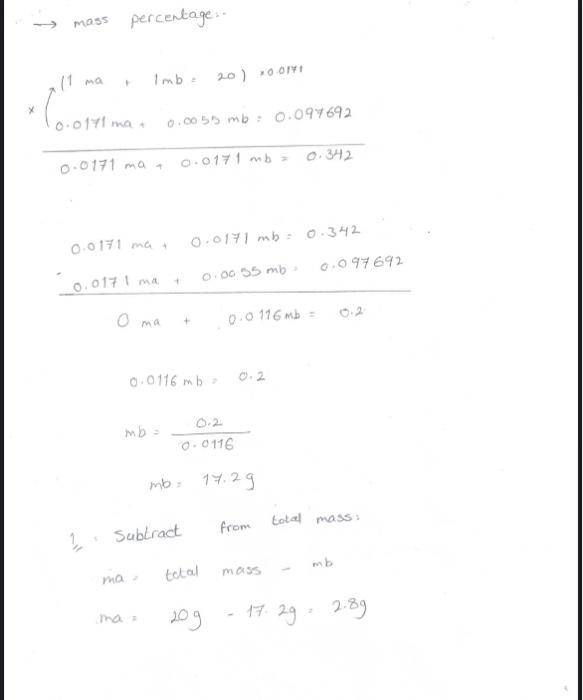 → mass percentage:-
(1 ma + 1mb = 20) ×0.0171
×
0.0171 ma + 0.0055 mb = 0.097692
0.0171 ma + 0.0171 mb = 0.342
0.0171 ma + 0.0171 mb = 0.342
-
0.0171 ma + 0.0055 mb = 0.097692
0 ma + 0.0116 mb = 0.2
0.0116 mb = 0.2
mb = 0.2
0.0116
mb = 17.2g
1. Subtract from total mass:
ma = total mass - mb
ma = 20g - 17.2g = 2.8g